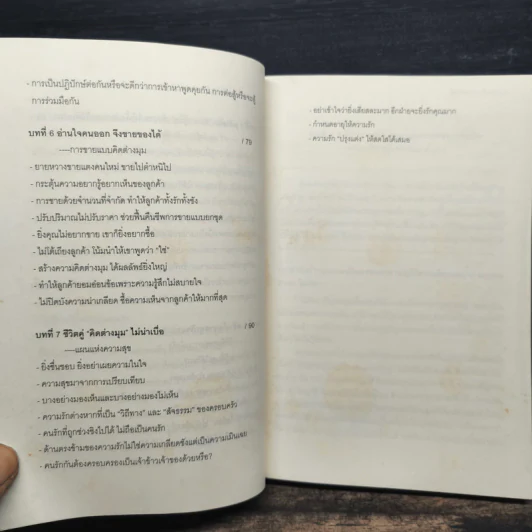 - การเป็นปฏิปักษ์ต่อกันหรือจะดีกว่าการเข้าหาพูดคุยกัน การต่อสู้หรือจะสู้
การร่วมมือกัน
บทที่ 6 อ่านใจคนออก จึงขายของได้ / 79
----การขายแบบคิดต่างมุม
- ยายหวางขายแตงคนใหม่ ขายไปตำหนิไป
- กระตุ้นความอยากรู้อยากเห็นของลูกค้า
- การขายด้วยจำนวนที่จำกัด ทำให้ลูกค้าทั้งรักทั้งชัง
- ปรับปริมาณไม่ปรับราคา ช่วยฟื้นคืนชีพการขายแบบยกชุด
- ยิ่งคุณไม่อยากขาย เขาก็ยิ่งอยากซื้อ
- ไม่โต้เถียงลูกค้า โน้มนำให้เขาพูดว่า "ใช่"
- สร้างความคิดต่างมุม ได้ผลลัพธ์ยิ่งใหญ่
- ทำให้ลูกค้ายอมอ่อนข้อเพราะความรู้สึกไม่สบายใจ
- ไม่ปิดบังความน่าเกลียด ซื้อความเห็นจากลูกค้าให้มากที่สุด
บทที่ 7 ชีวิตคู่ "คิดต่างมุม" ไม่น่าเบื่อ / 90
----แผนแห่งความสุข
- ยิ่งชื่นชอบ ยิ่งอย่าเผยความในใจ
- ความสุขมาจากการเปรียบเทียบ
- บางอย่างมองเห็นและบางอย่างมองไม่เห็น
- ความรักต่างหากที่เป็น "วิถีทาง" และ "สัจธรรม" ของครอบครัว
- คนรักที่ถูกช่วงชิงไปได้ ไม่ถือเป็นคนรัก
- ด้านตรงข้ามของความรักไม่ใช่ความเกลียดชังแต่เป็นความเมินเฉย
- คนรักกันต้องครอบครองเป็นเจ้าข้าวเจ้าของด้วยหรือ?
- อย่าเข้าใจว่ายิ่งเสียสละมาก อีกฝ่ายจะยิ่งรักคุณมาก
- กำหนดอายุให้ความรัก
- ความรัก "ปรุงแต่ง" ให้สดใสได้เสมอ